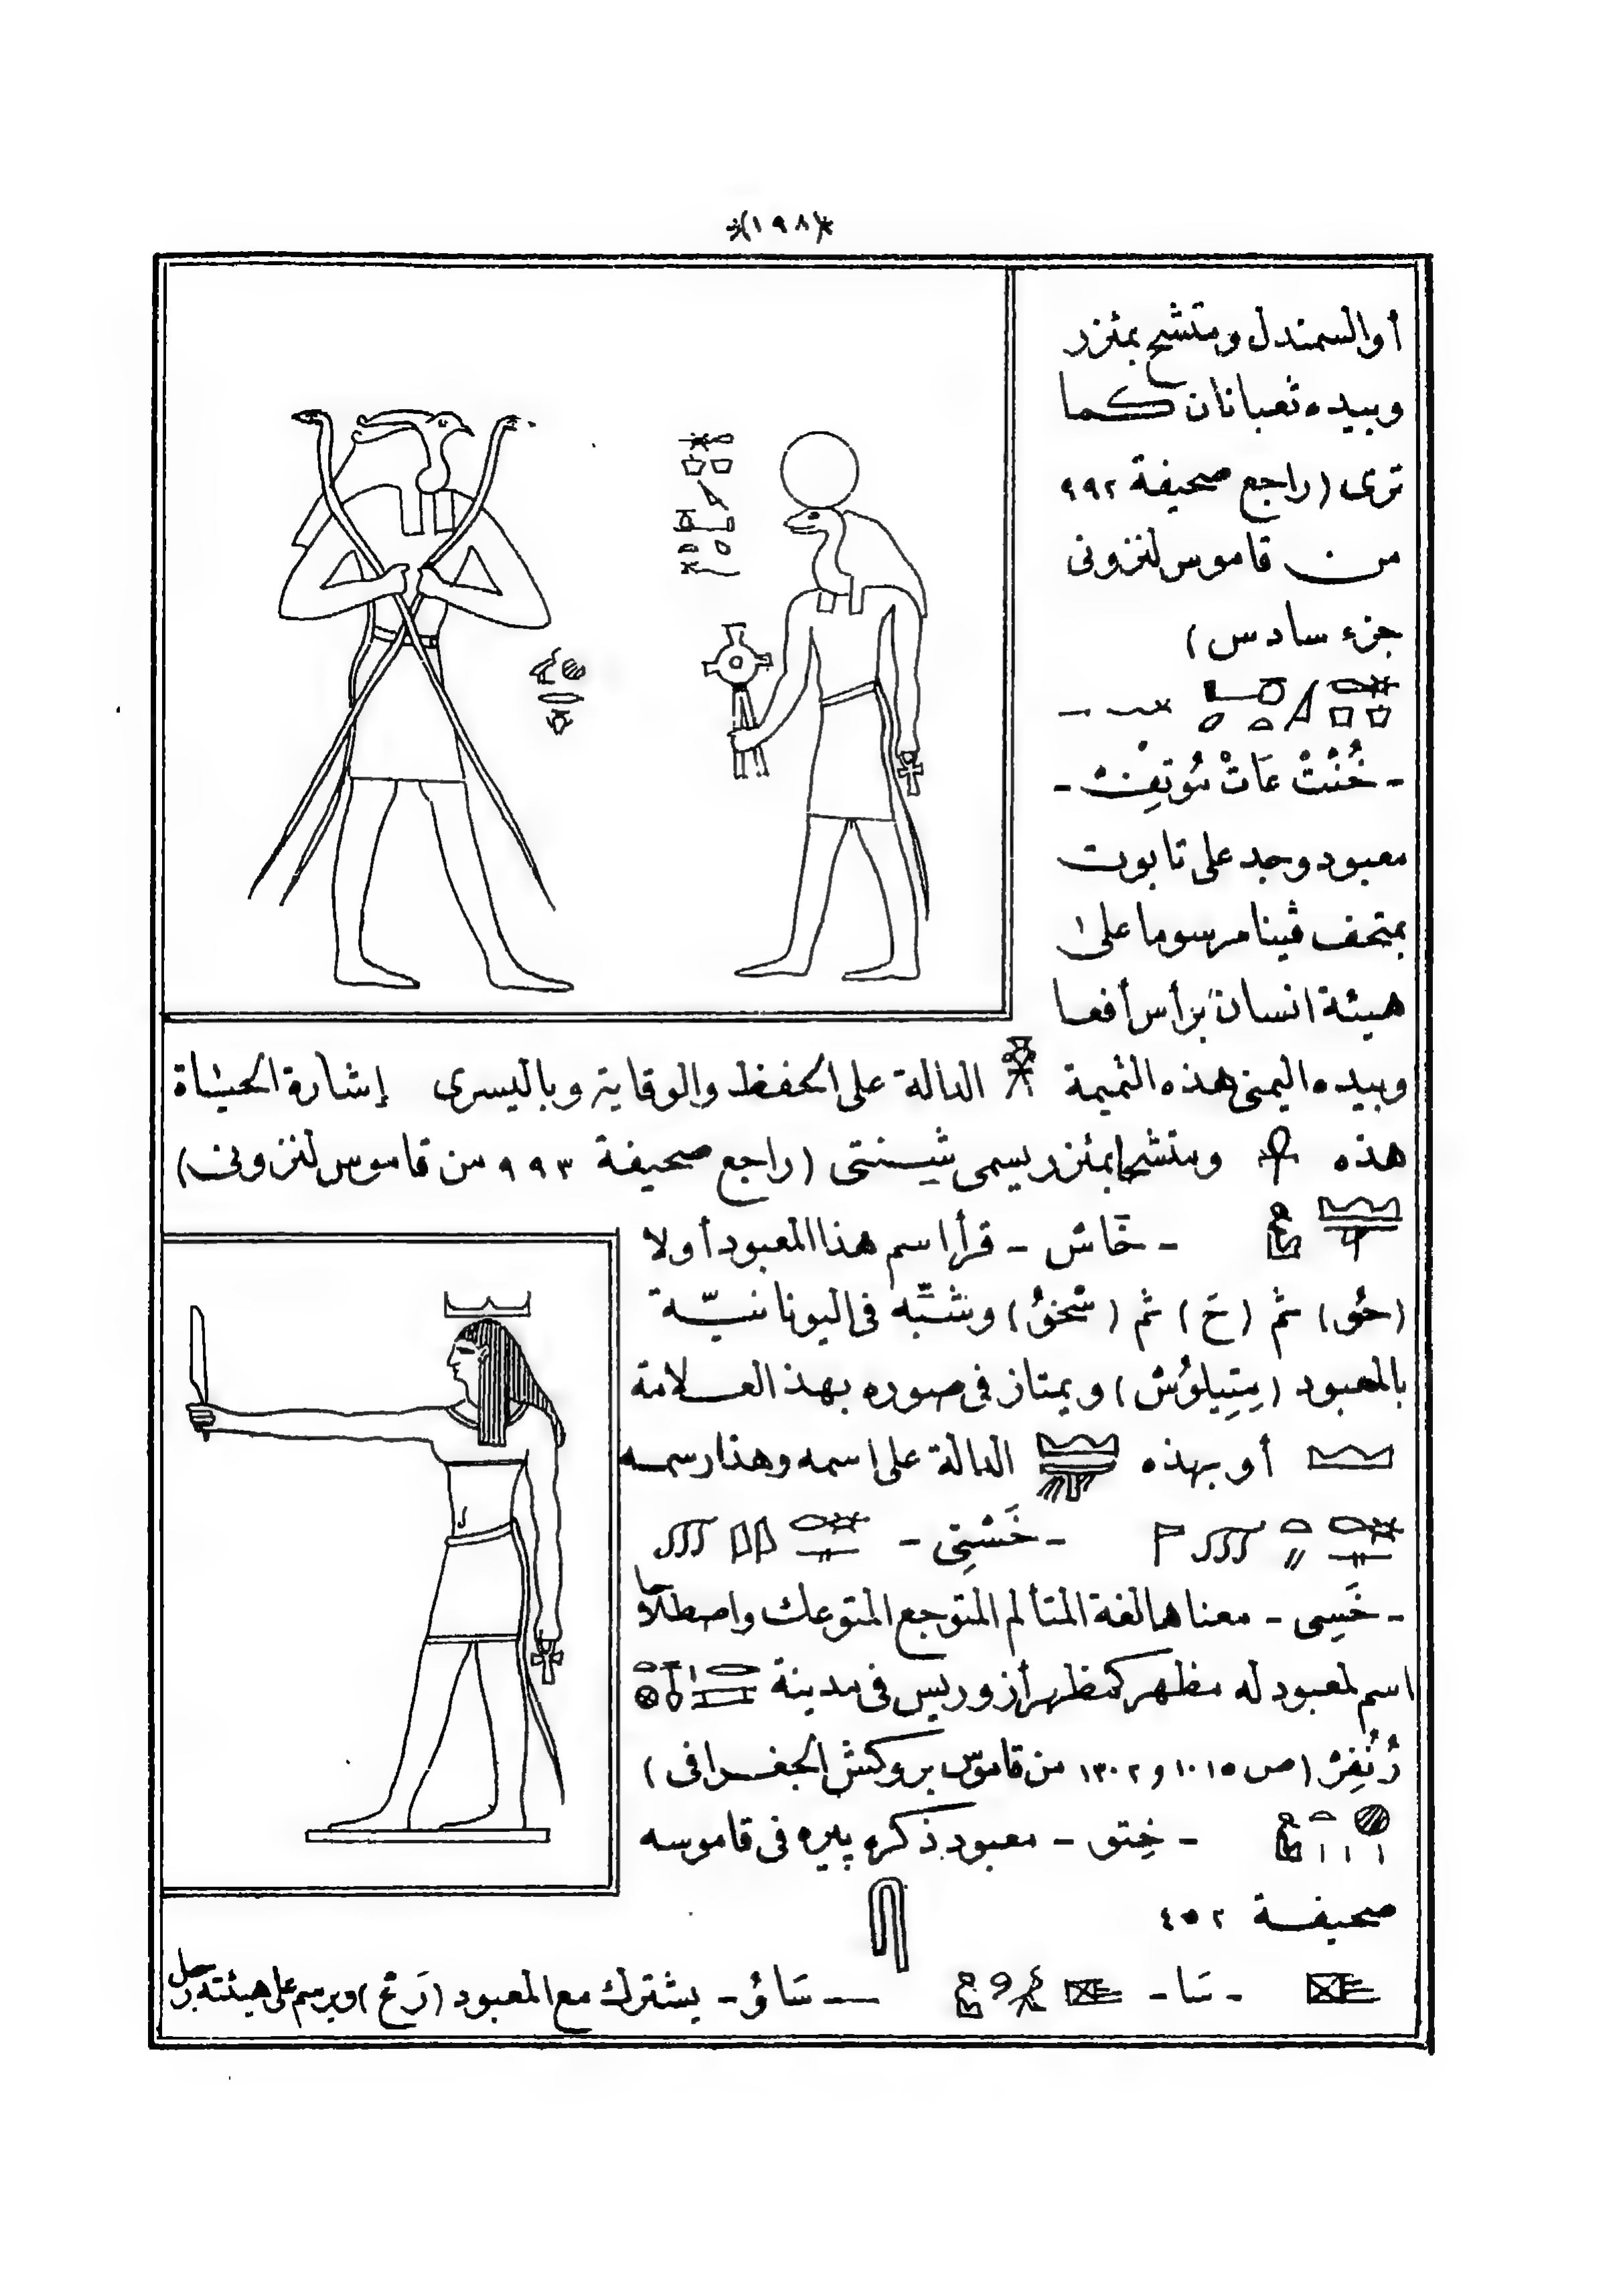 *(١٩٨)*
أو السمندل ومتشح بمئزر
وبيده ثعبانان كما
ترى (راجع صحيفة ٩٩٢
من قاموس لنزونى
جزء سادس)
- خُنْتْ عَاتْ سُوتِفِنتْ -
معبود وجد على تابوت
بمتحف ڤينا مرسوما على
هيئة انسان برأس أفعا
وبيده اليمنى هذه التميمة الدالة على الحفظ والوقاية وباليسرى إشارة الحياة
هذه ومتشحا بمئزر يسمى شِنتى (راجع صحيفة ٩٩٣ من قاموس لنزونى)
- خَاسْ - قرأ اسم هذا المعبود أولا
(حُو) ثم (خَ) ثم (سْخَوُ) وشبّه فى اليونانيّة
بالمعبود (بِتِيلُوسْ) ويمتاز فى صوره بهذ العلامة
أو بهذه الدالة على اسمه وهذا رسمه
- خَسْتِى -
- خَسِى - معناها لغة المتألم المتوجع المتوعك واصطلاحا
اسم لمعبود له مظهر كمظهر أزوريس فى مدينة
رُنُفِرْ (ص ١٠١٥ و ١٣٠٢ من قاموس بروكش الجغرافى)
- خِتو - معبود ذكره پيره فى قاموسه
صحيفة ٤٥٢
- سَا - - سَاوُ - يشترك مع المعبود (رَعْ) ويرسم على هيئته رجل